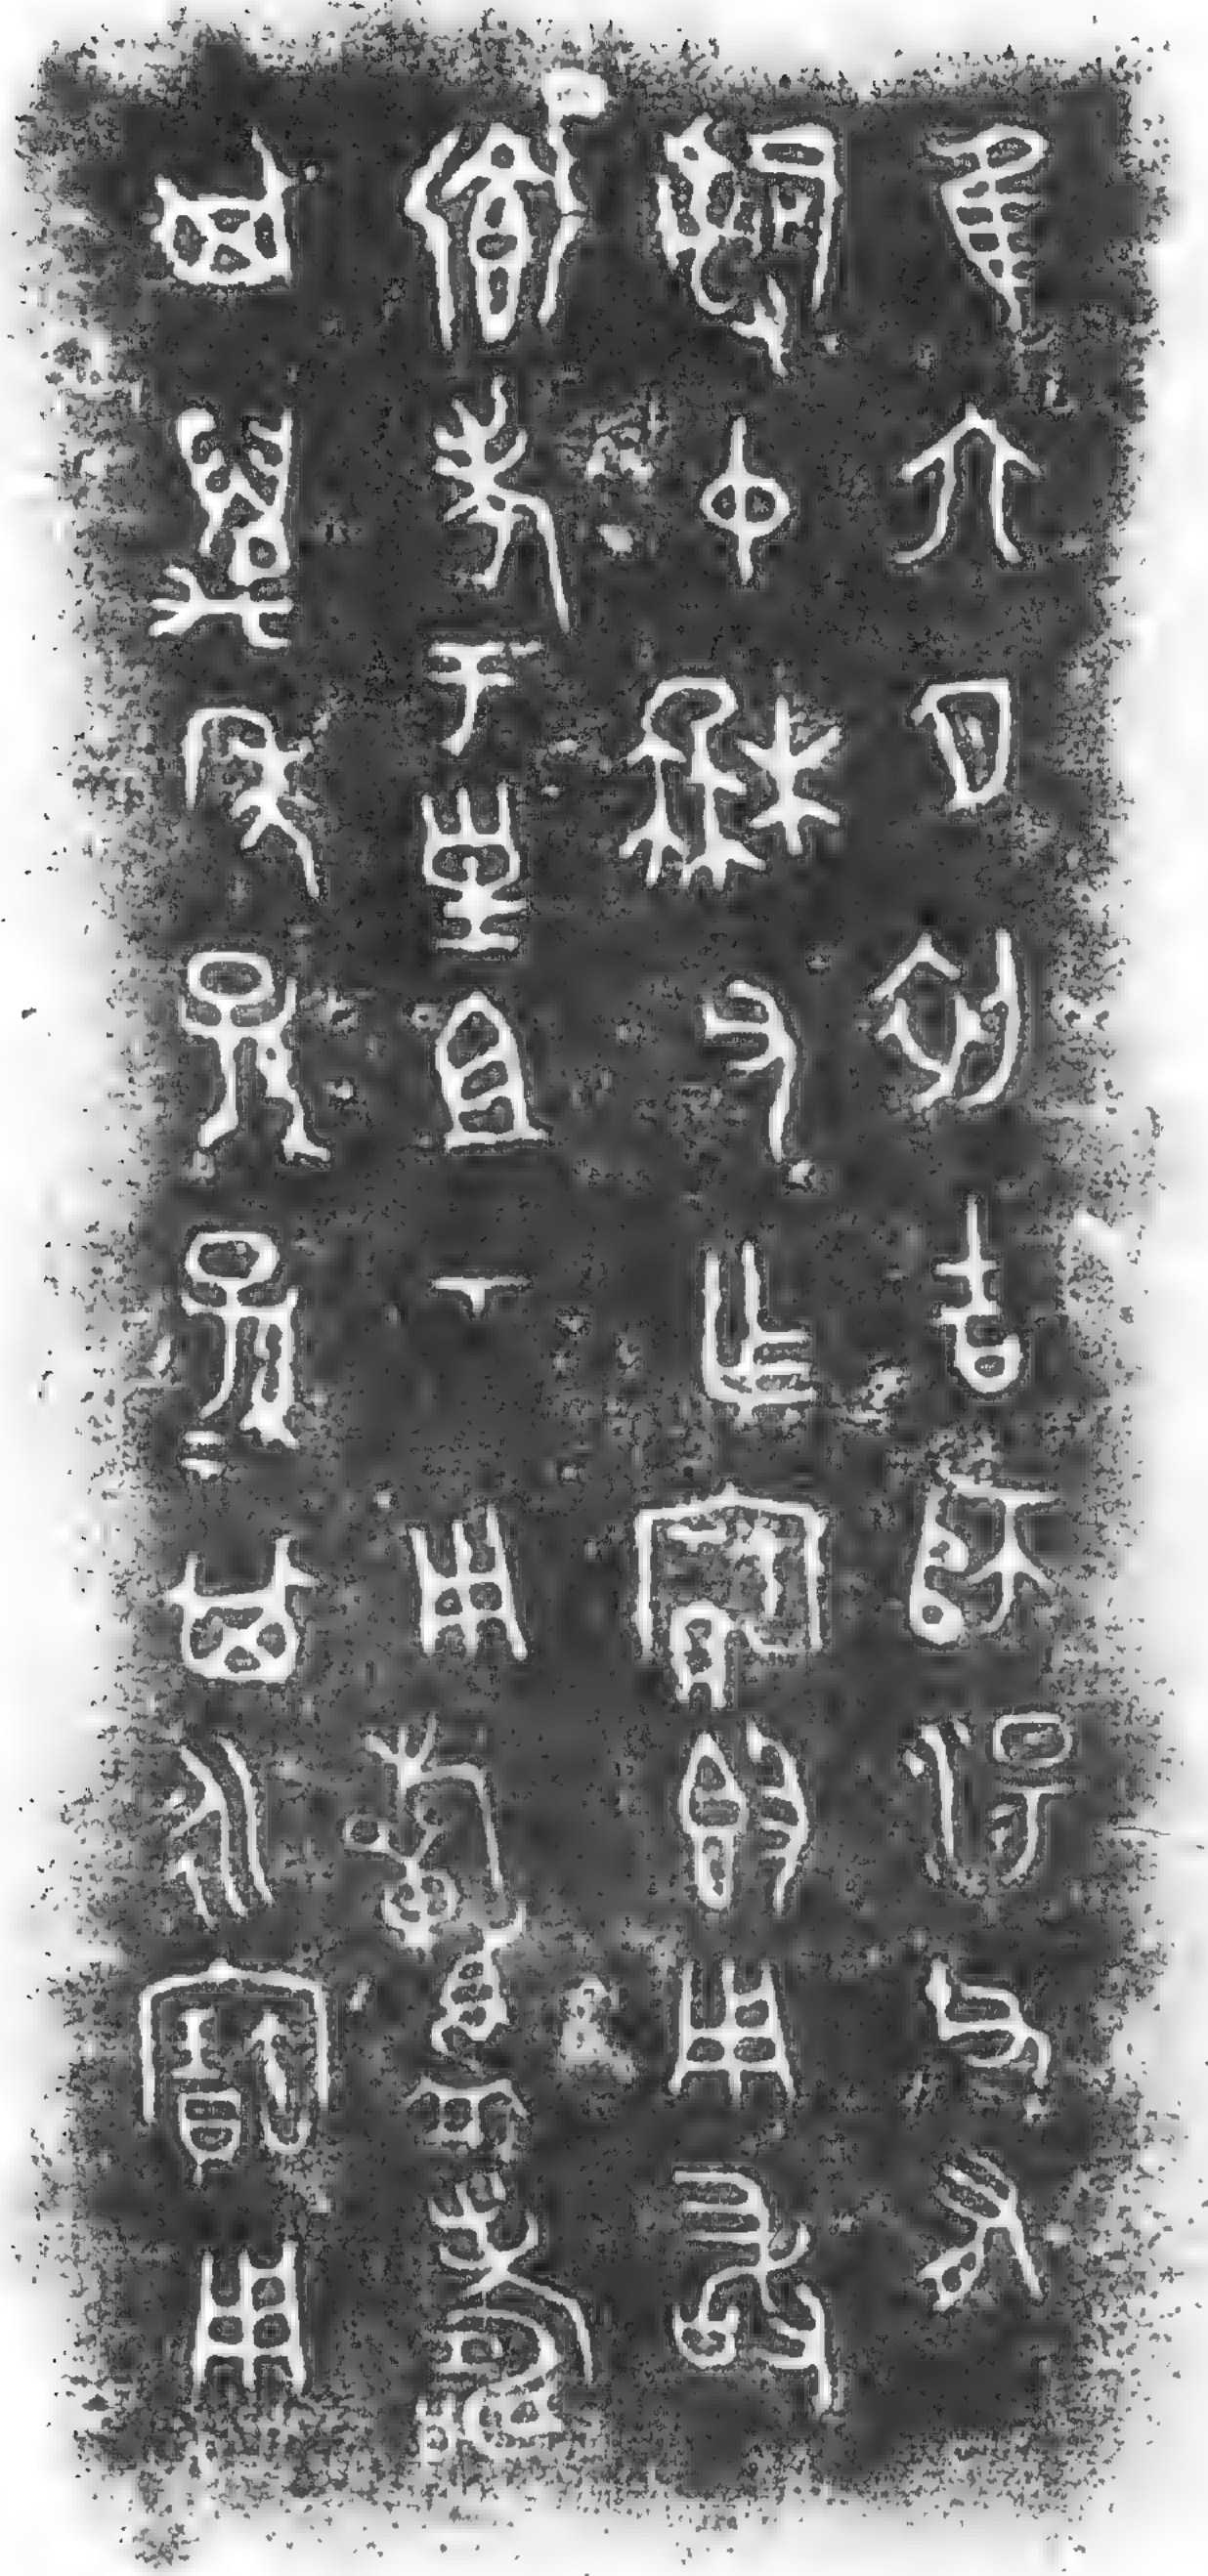 隹六月初吉師湯父有
嗣中枏父乍寶𣪘用敢
鄉孝于皇且丂用祈眉壽
其萬年子孫其永寶用